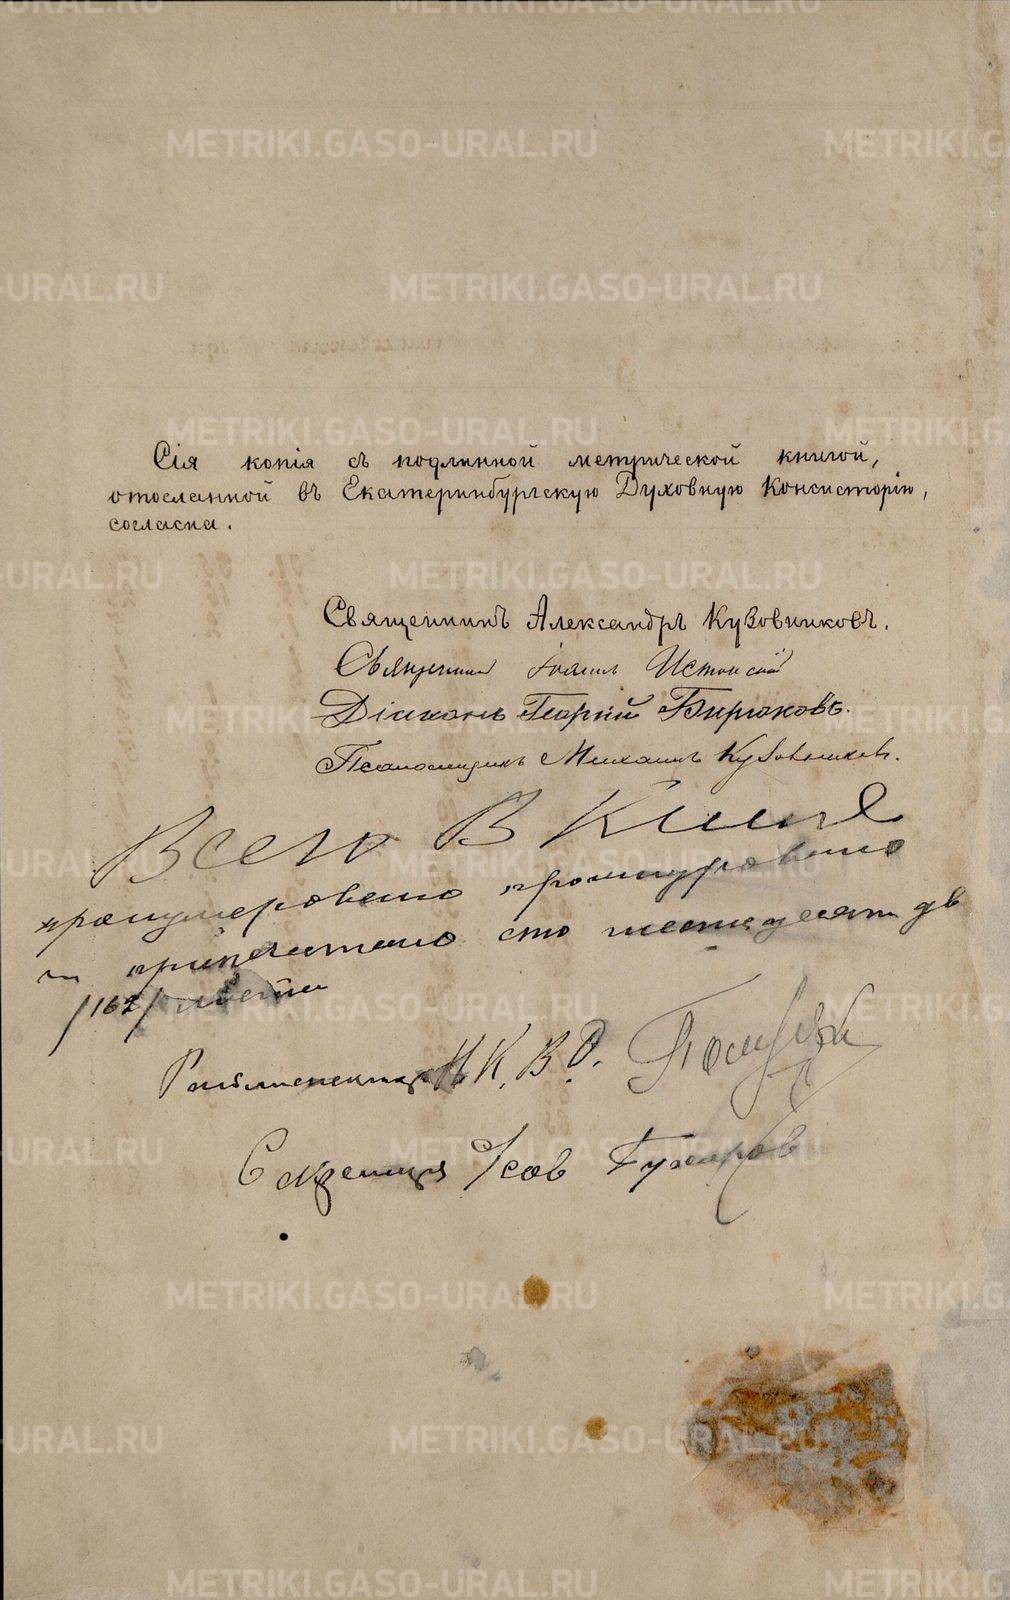 Сія копія съ подлинной метрической книгой,
отосланной въ Екатеринбургскую Духовную Консисторію,
согласна.
Священникъ Александръ Кузовниковъ.
Священникъ Іоаннъ
Діаконъ Георгій Бирюковъ.
Псаломщикъ Михаилъ Кузовниковъ.
Всего в книге
пронумеровано прошнуровано
и припечатано сто шестьдесят дв
/162/ листа
Райинспектор Н.К.В.Д.
Секретарь
METRIKI.GASO-URAL.RU